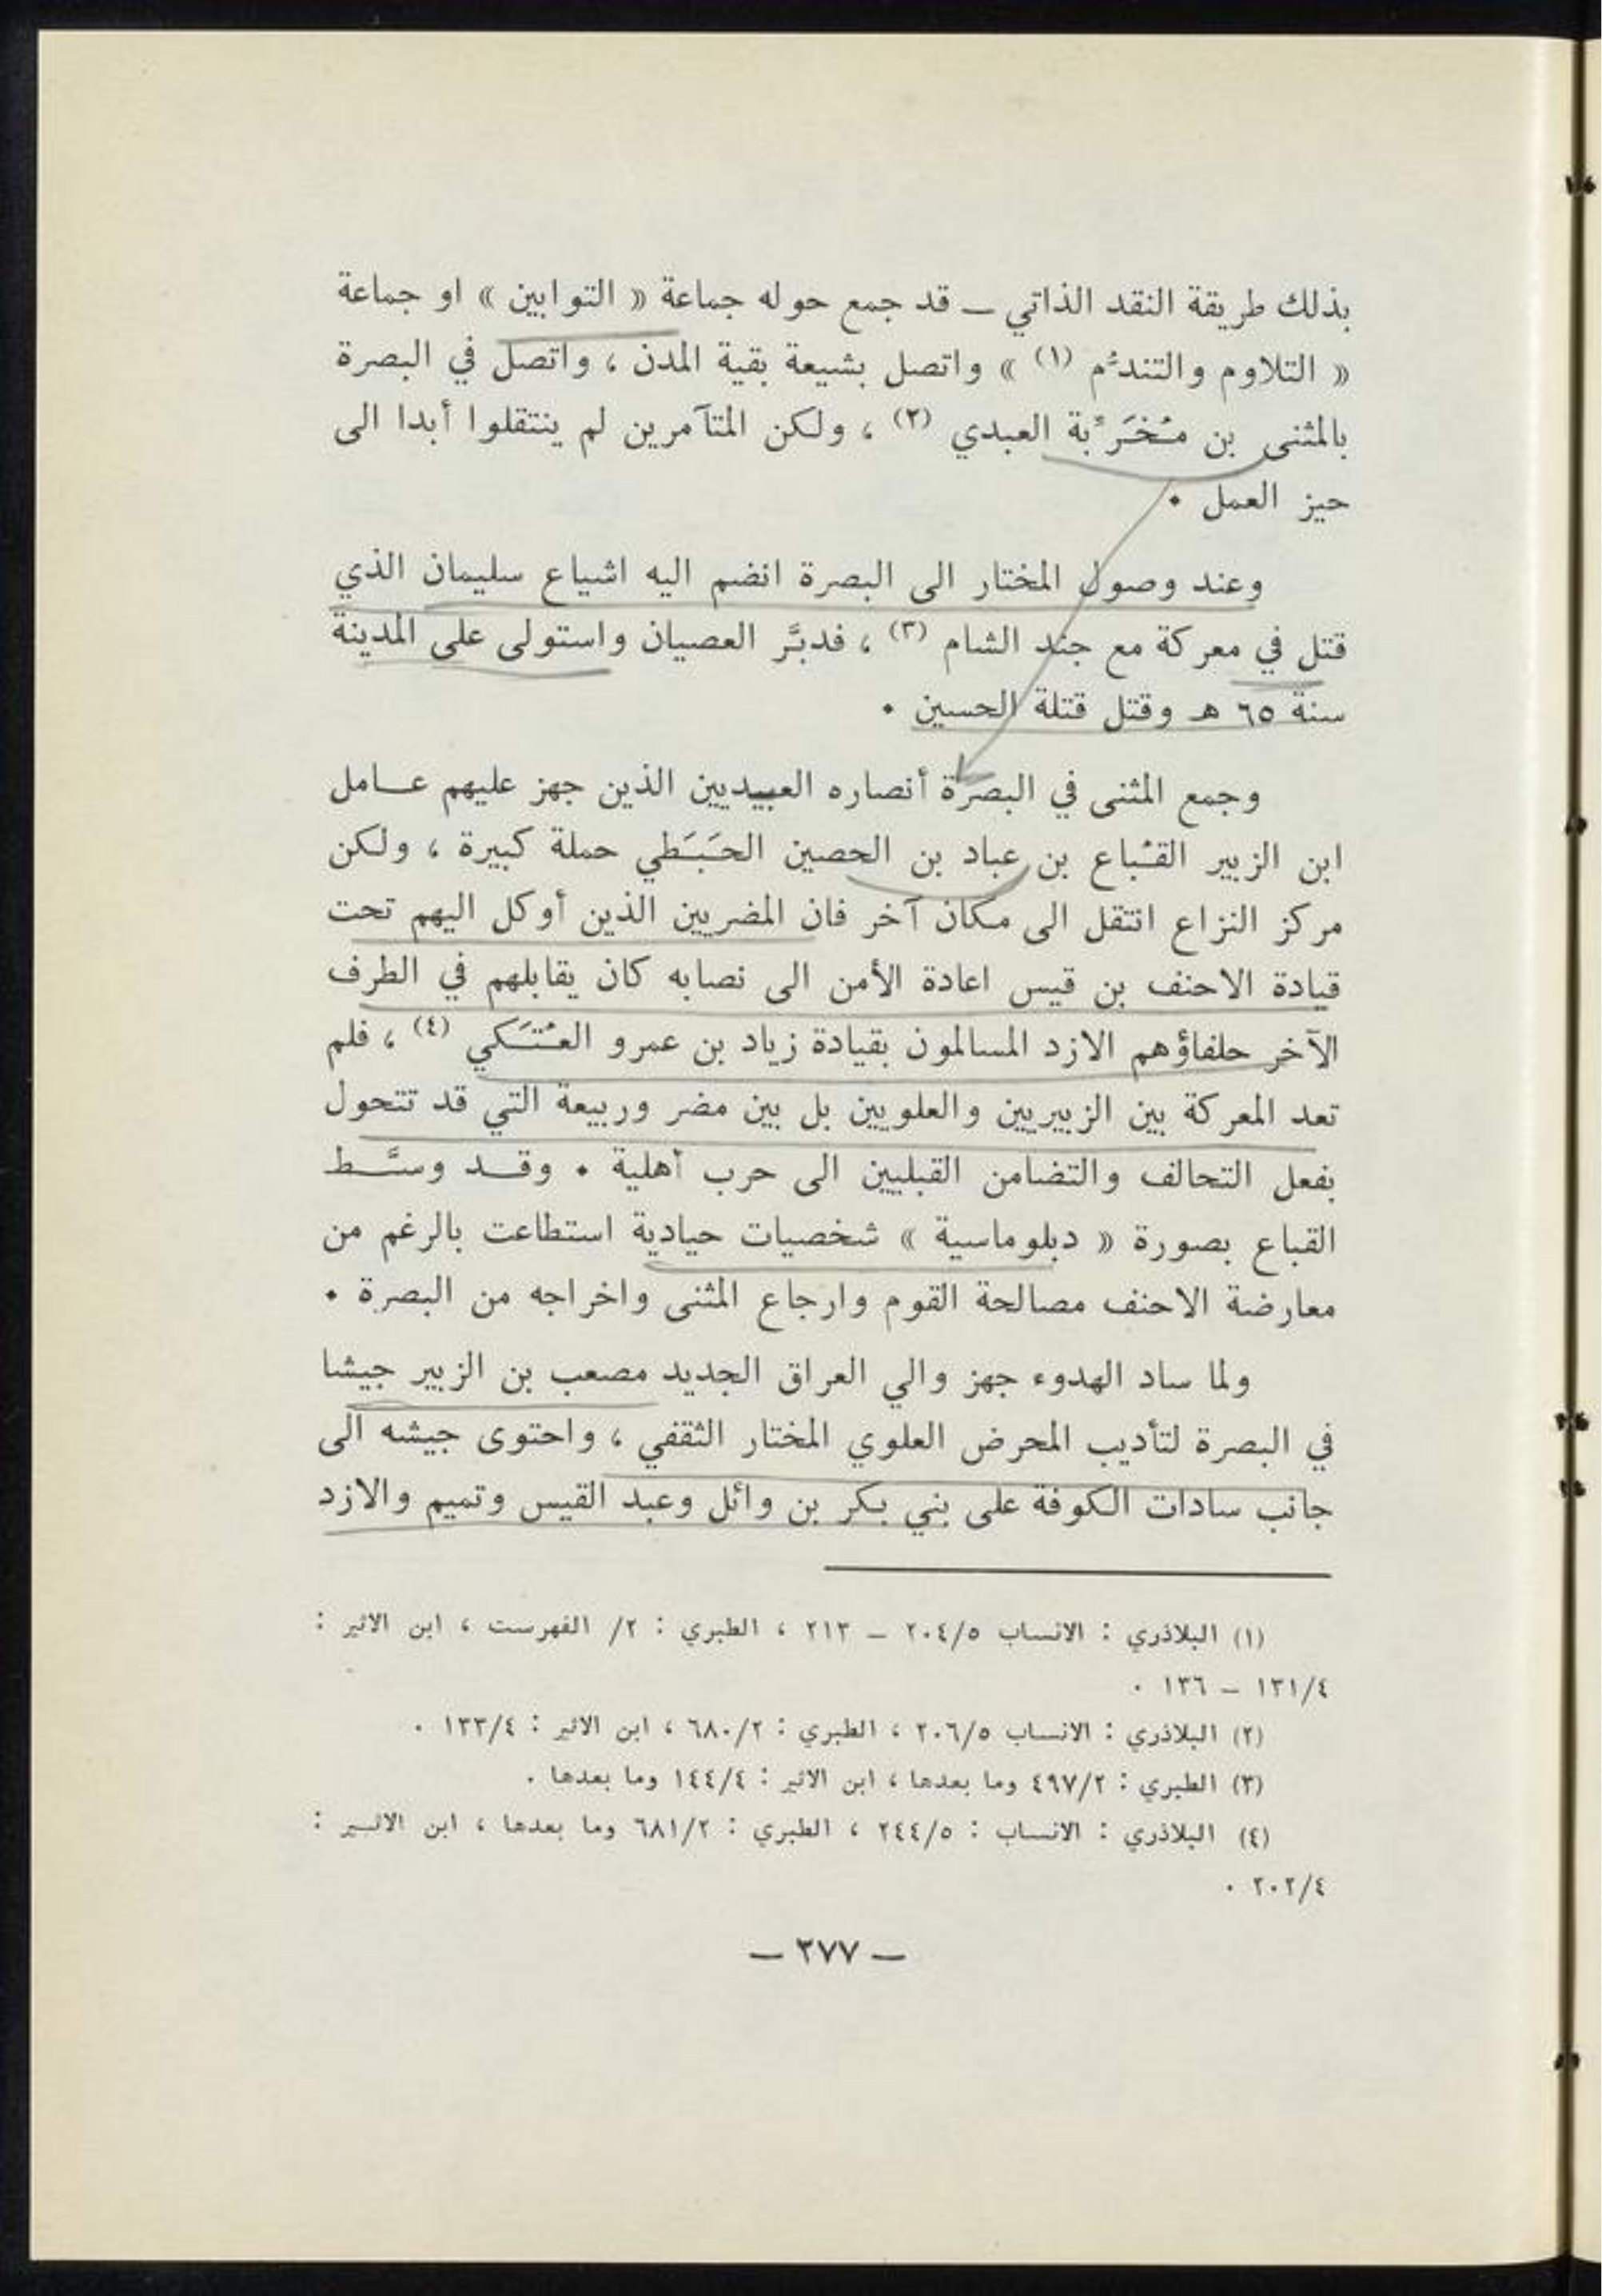 بذلك طريقة النقد الذاتي — قد جمع حوله جماعة « التوابين » او جماعة
« التلاوم والتندُّم (١) » واتصل بشيعة بقية المدن ، واتصل في البصرة
بالمثنى بن مُخَرِّبة العبدي (٢) ، ولكن المتآمرين لم ينتقلوا أبدا الى
حيز العمل ٠
وعند وصول المختار الى البصرة انضم اليه اشياع سليمان الذي
قتل في معركة مع جند الشام (٣) ، فدبَّر العصيان واستولى على المدينة
سنة ٦٥ هـ وقتل قتلة الحسين ٠
وجمع المثنى في البصرة أنصاره العبيديين الذين جهز عليهم عـامل
ابن الزبير القُباع بن عباد بن الحصين الحَبَطي حملة كبيرة ، ولكن
مركز النزاع انتقل الى مكان آخر فان المضريين الذين أوكل اليهم تحت
قيادة الاحنف بن قيس اعادة الأمن الى نصابه كان يقابلهم في الطرف
الآخر حلفاؤهم الازد المسالمون بقيادة زياد بن عمرو العُتَكي (٤) ، فلم
تعد المعركة بين الزبيريين والعلويين بل بين مضر وربيعة التي قد تتحول
بفعل التحالف والتضامن القبليين الى حرب أهلية ٠ وقـد وسَّـط
القباع بصورة « دبلوماسية » شخصيات حيادية استطاعت بالرغم من
معارضة الاحنف مصالحة القوم وارجاع المثنى واخراجه من البصرة ٠
ولما ساد الهدوء جهز والي العراق الجديد مصعب بن الزبير جيشا
في البصرة لتأديب المحرض العلوي المختار الثقفي ، واحتوى جيشه الى
جانب سادات الكوفة على بني بكر بن وائل وعبد القيس وتميم والازد
(١) البلاذري : الانساب ٢٠٤/٥ — ٢١٣ ، الطبري : ٢/ الفهرست ، ابن الاثير :
١٣١/٤ — ١٣٦ ٠
(٢) البلاذري : الانساب ٢٠٦/٥ ، الطبري : ٦٨٠/٢ ، ابن الاثير : ١٣٣/٤ ٠
(٣) الطبري : ٤٩٧/٢ وما بعدها ، ابن الاثير : ١٤٤/٤ وما بعدها .
(٤) البلاذري : الانساب : ٢٤٤/٥ ، الطبري : ٦٨١/٢ وما بعدها ، ابن الاثـير :
٢٠٢/٤ ٠
— ٢٧٧ —